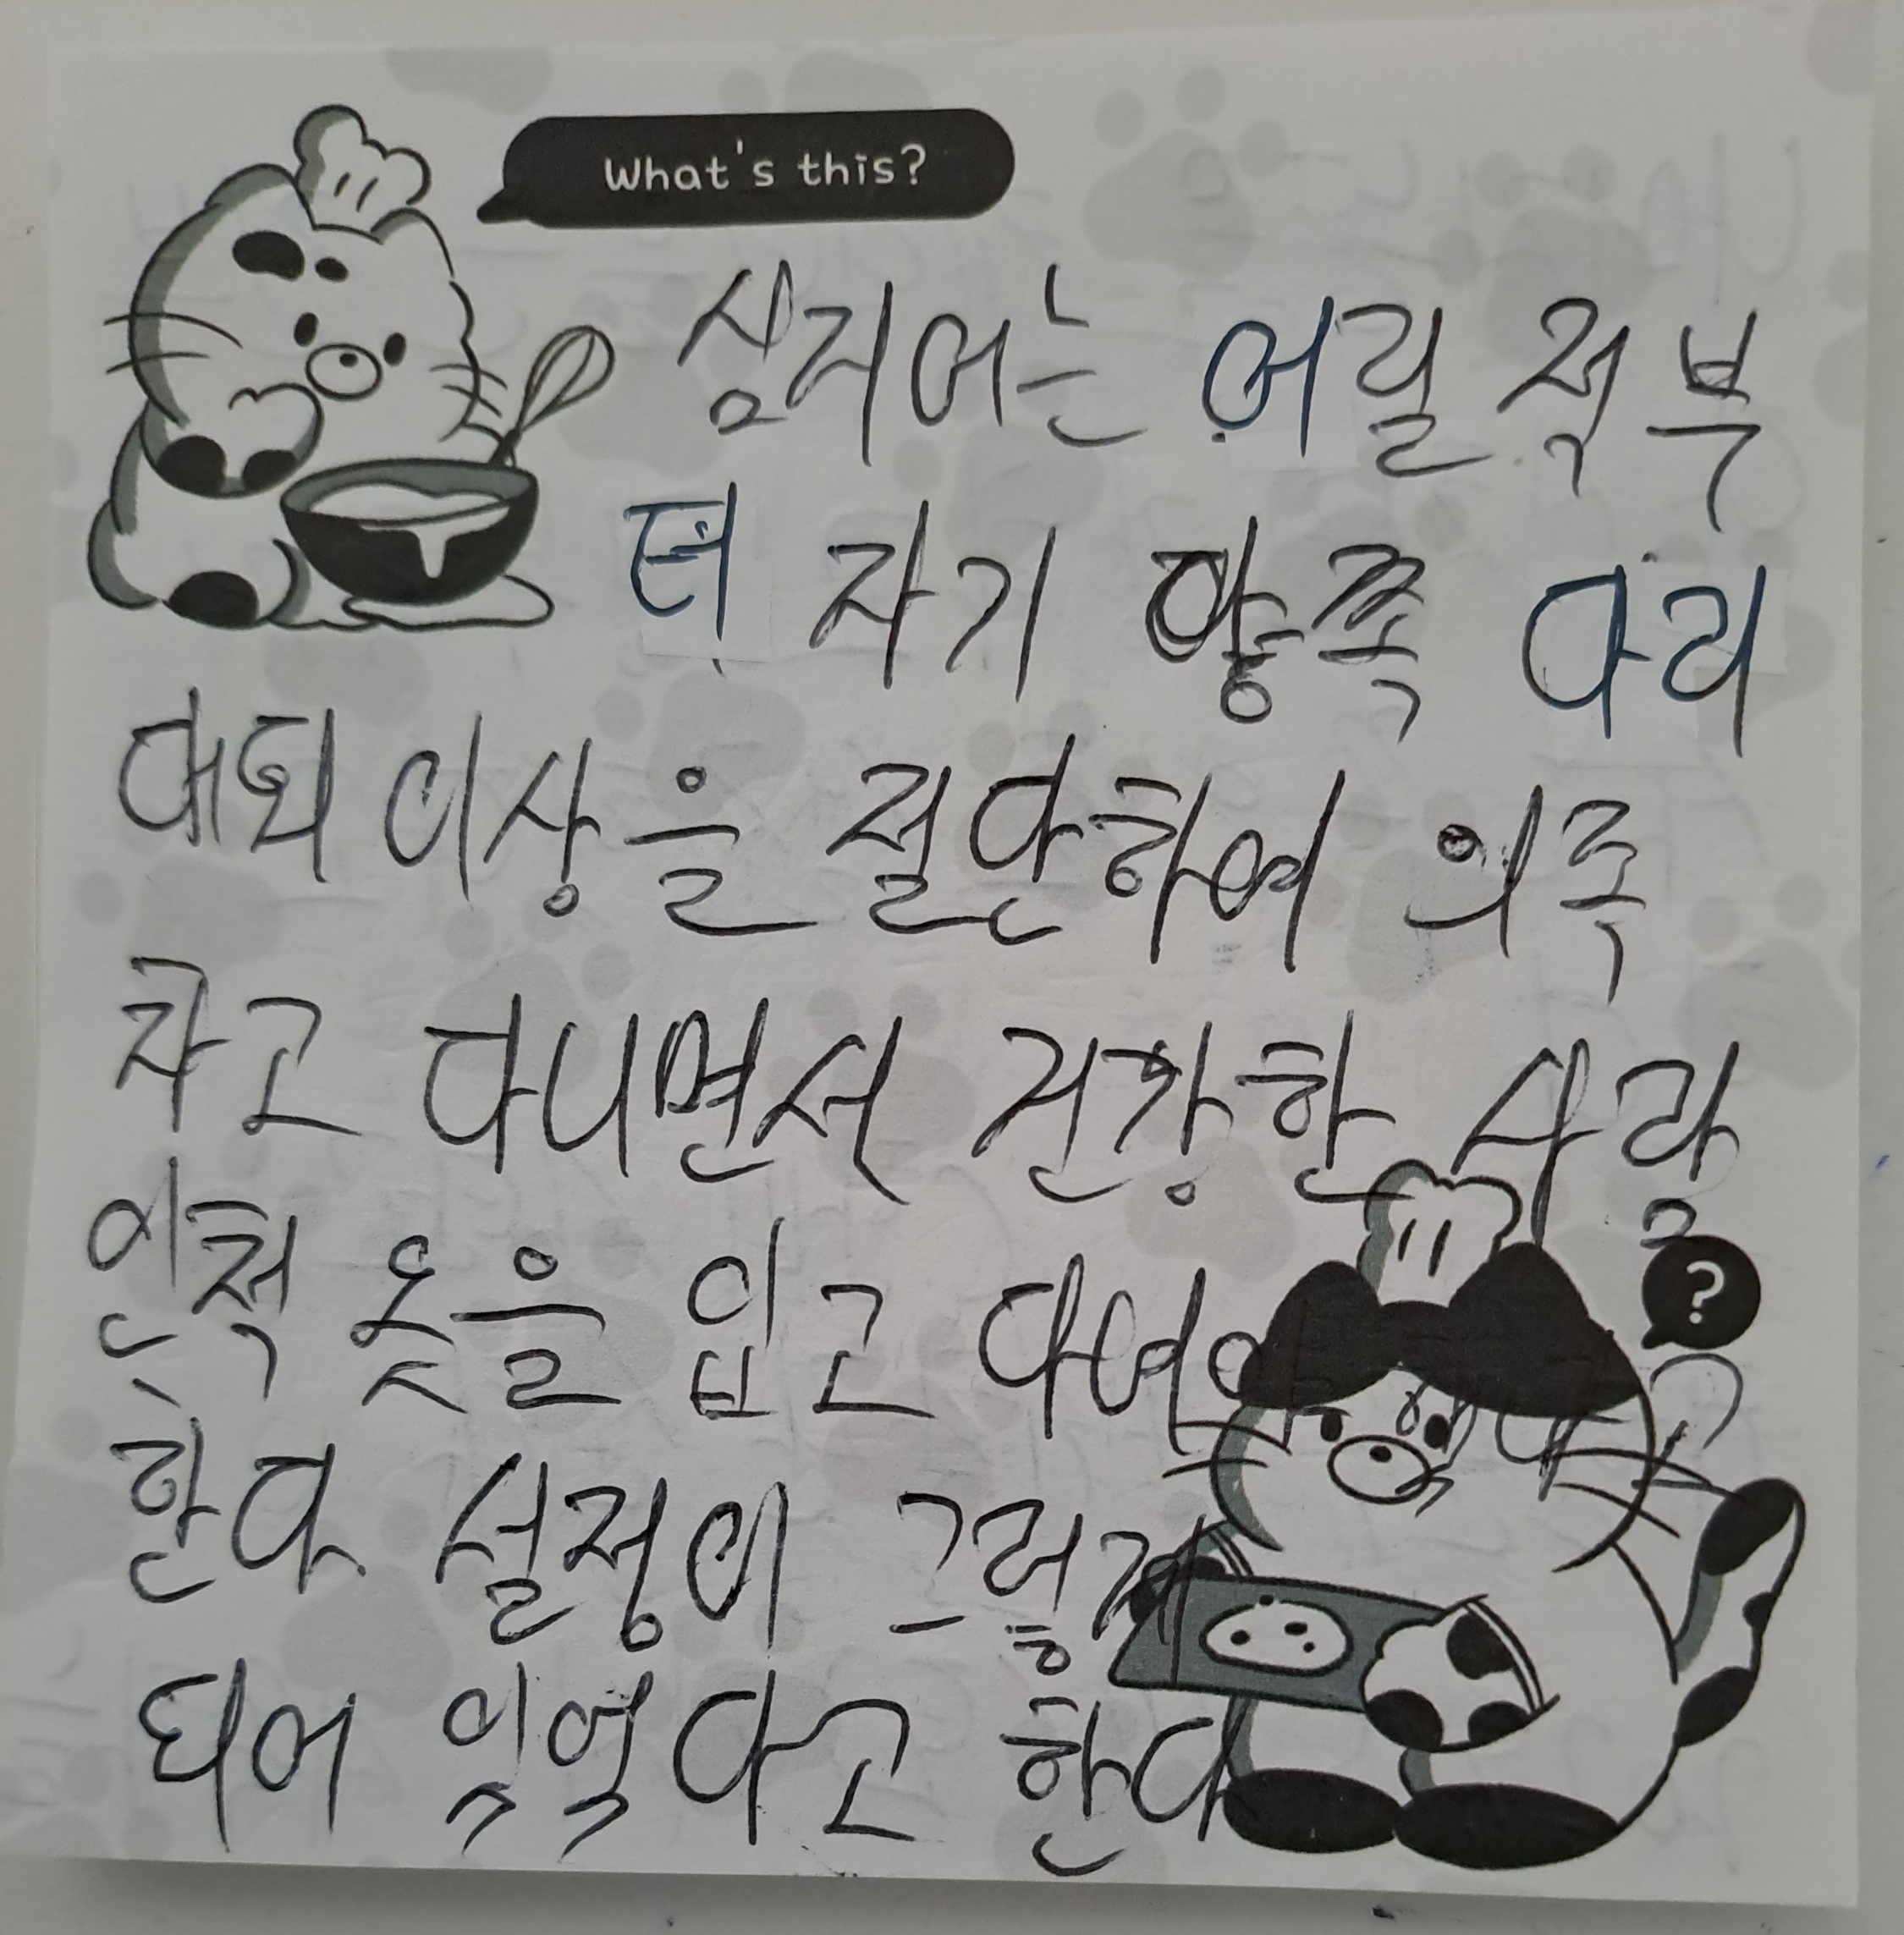 What's this?
심지어는 어릴 적부
터 자기 양쪽 다리
대퇴 이상을 절단하여 의족
차고 다니면서 건강한 사람
인척 옷을 입고 다녀야
한다 설정이 그렇게
되어 있었다고 한다
?